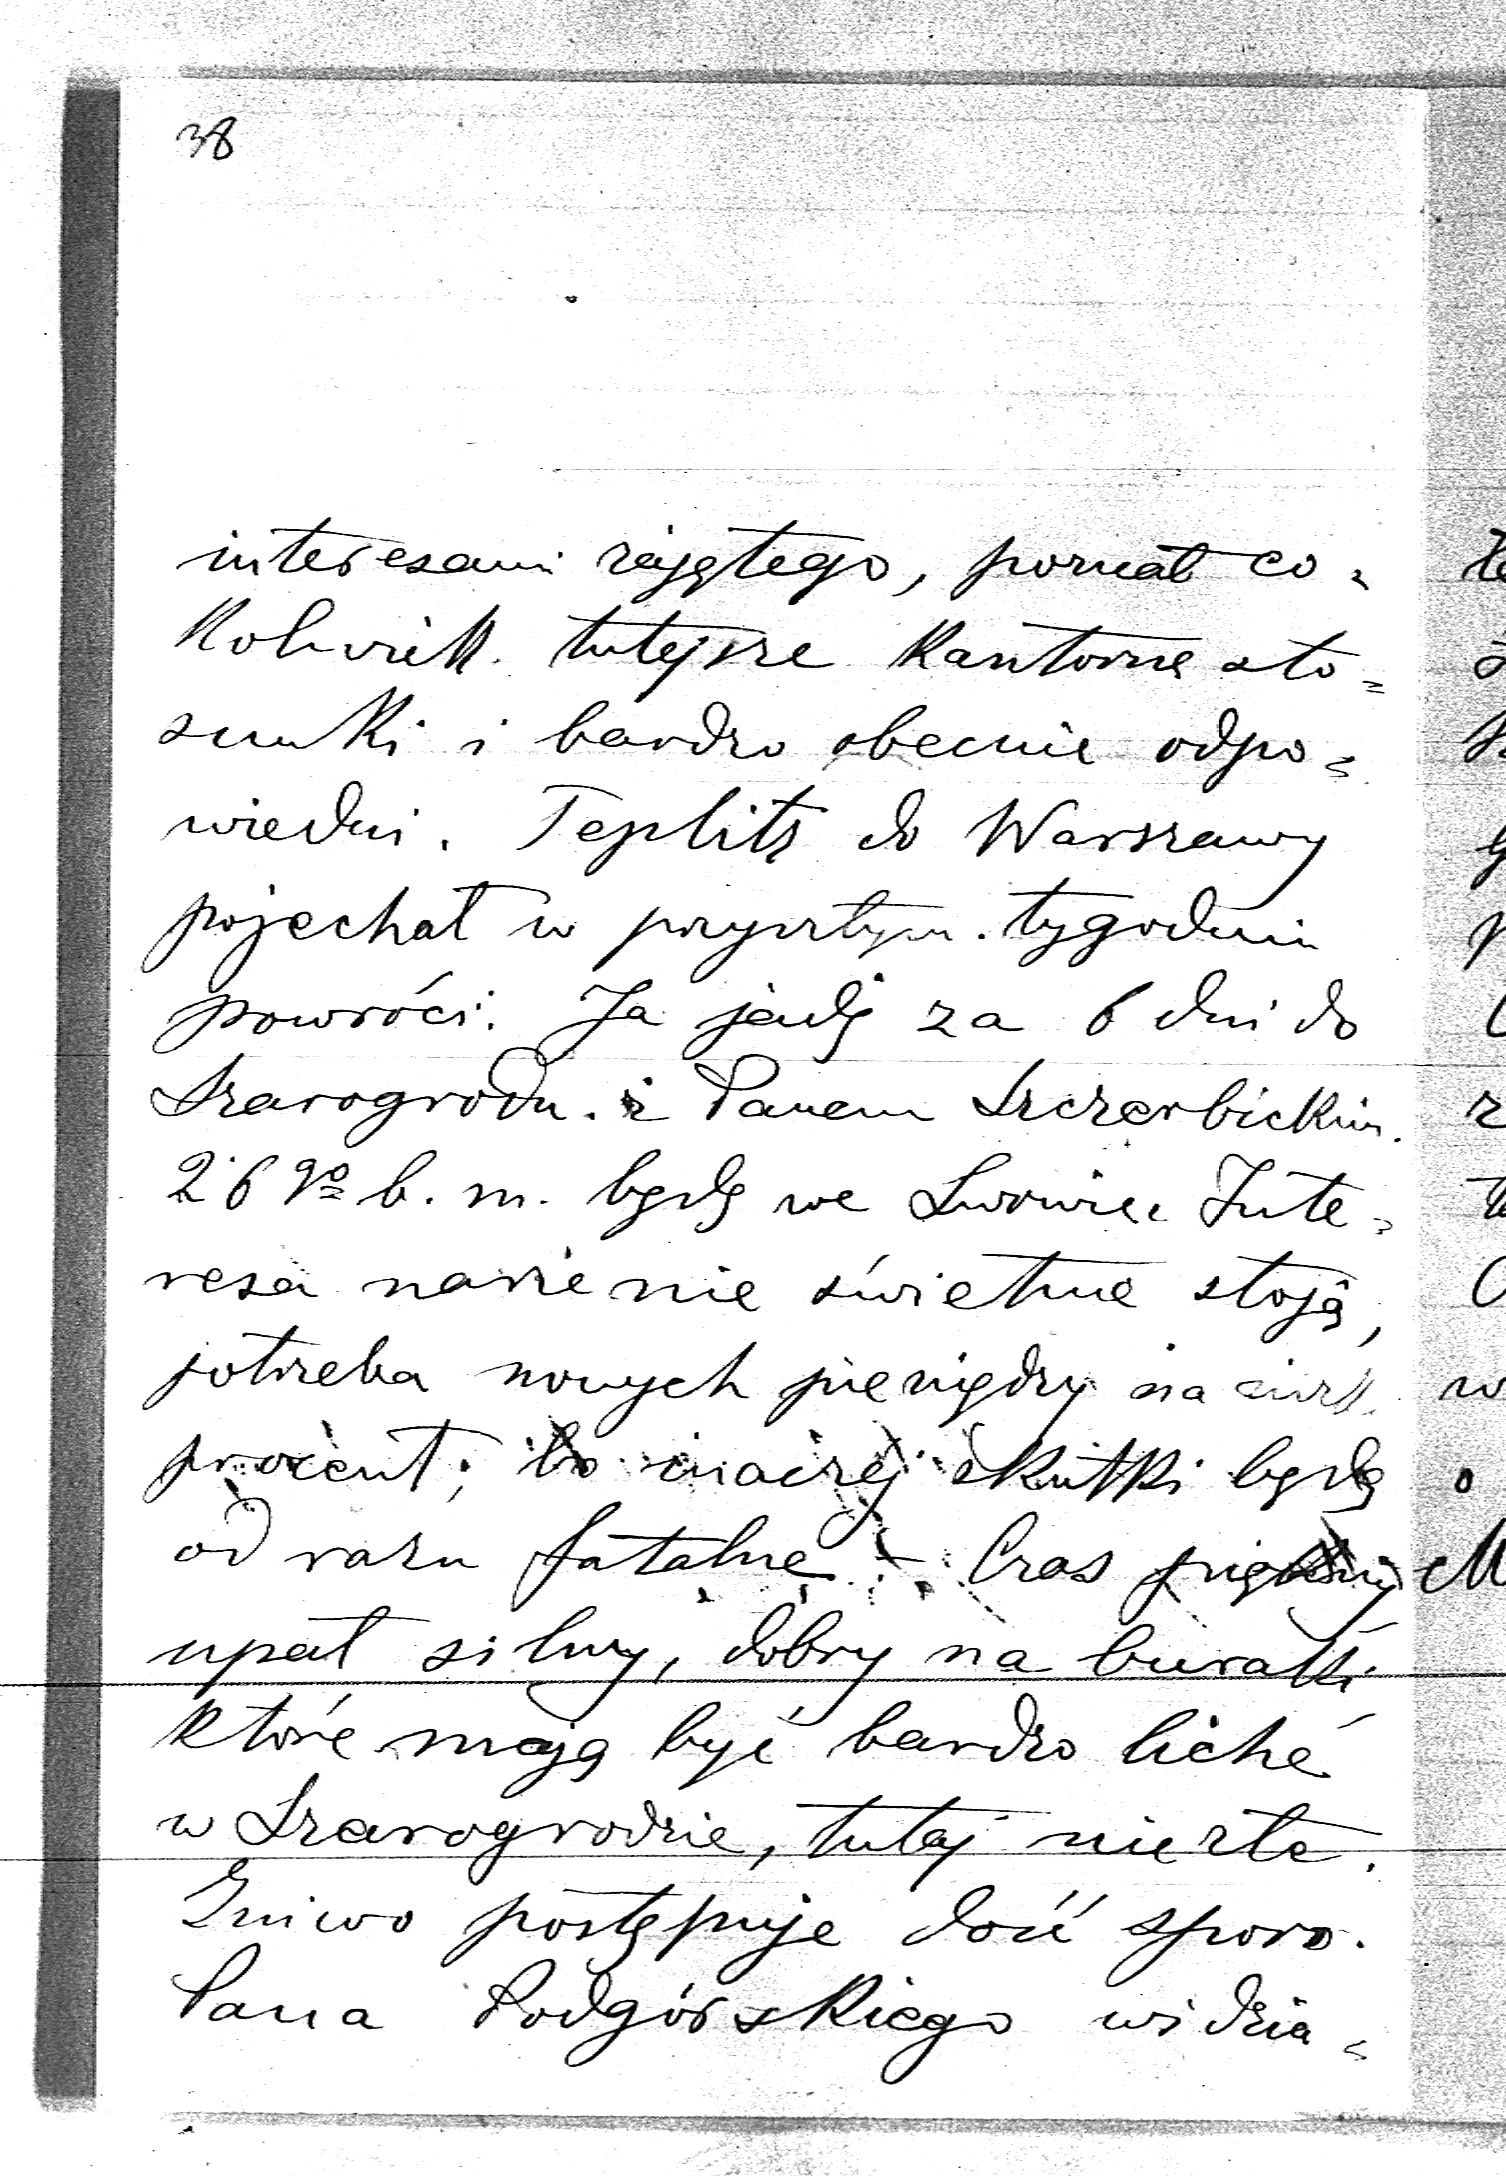 38
interesami zajętego, poznał co-
kolwiek tutejsze kantorne sto=
sunki i bardzo obecnie odpo=
wiedni. Teplitz do Warszawy
pojechał w przyszłym tygodniu
powróci. Ja jadę za 6 dni do
Szarogrodu z Panem Szczerbickim.
26go b. m. będę we Lwowie. Inte=
resa nasze nie świetne stoją,
potrzeba nowych pieniędzy na
procent, bo inaczej skutki będą
od razu fatalne. Czas piękny
upał silny, dobry na buraki
które mają być bardzo liche
w Szarogrodzie, tutaj nie złe.
Żniwo postępuje dość sporo.
Pana Podgórskiego widzia=